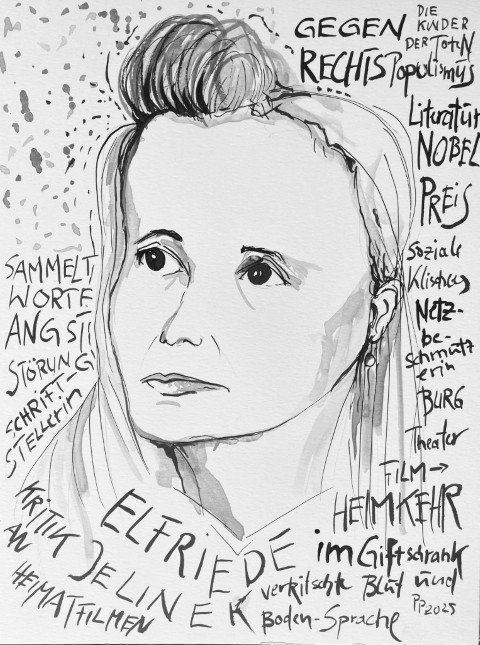 GEGEN
RECHTSPopulismus
DIE
KINDER
DER TOTEN
Literatur
NOBEL
PREIS
Soziale
Klischees
Netz-
be-
schmutz
erin
BURG
Theater
FILM→
HEIMKEHR
im Giftschrank
verkitschte Blut und
Boden-Sprache
PP2025
SAMMELT
WORTE
ANGST
STÖRUNG
SCHRIFT-
STELLERIN
KRITIK
AN
HEIMATFILMEN
ELFRIEDE
JELINEK